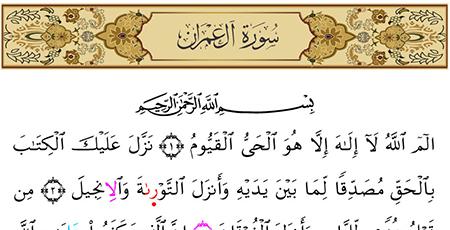 سُورَةُ آلِ عِمْرَانَ
بِسْمِ ٱللَّهِ ٱلرَّحْمَٰنِ ٱلرَّحِيمِ
الٓمٓ ٱللَّهُ لَآ إِلَٰهَ إِلَّا هُوَ ٱلْحَىُّ ٱلْقَيُّومُ ﴿١﴾ نَزَّلَ عَلَيْكَ ٱلْكِتَٰبَ
بِٱلْحَقِّ مُصَدِّقًا لِّمَا بَيْنَ يَدَيْهِ وَأَنزَلَ ٱلتَّوْرَىٰةَ وَٱلْإِنجِيلَ ﴿٢﴾ مِن